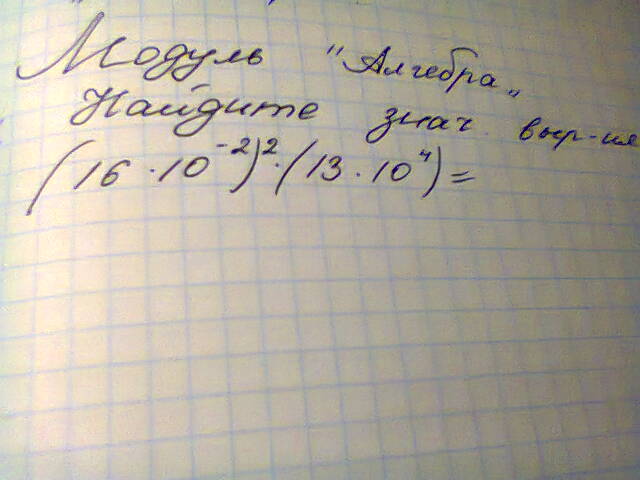 Модуль "Алгебра„
Найдите знач. выр-ия
(16 · 10⁻²)² · (13 · 10⁴) =